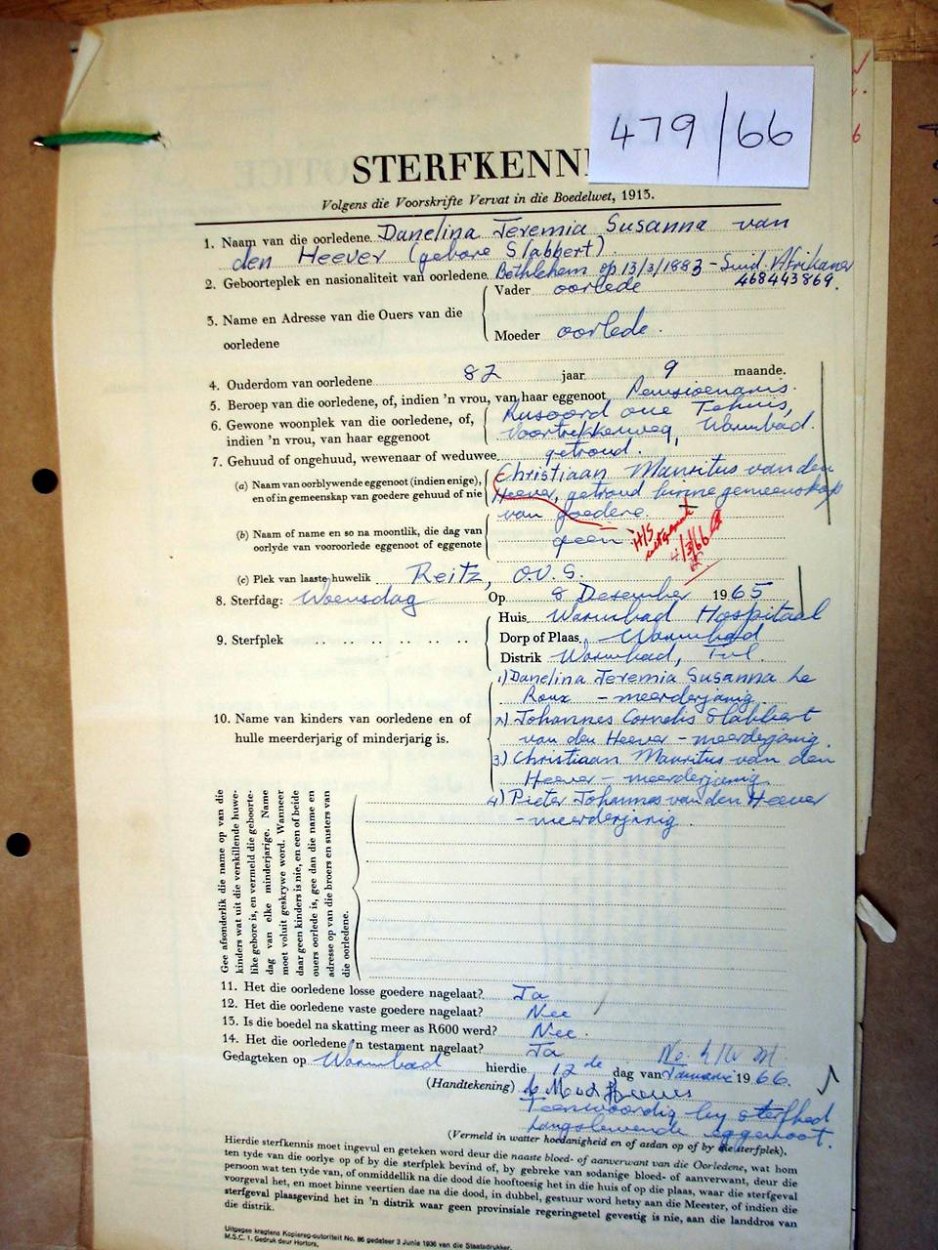 479/66
STERFKENN
Volgens die Voorskrifte Vervat in die Boedelwet, 1913.
1. Naam van die oorledene Danelina Jeremia Susanna van
den Heever (gebore Slabbert)
2. Geboorteplek en nasionaliteit van oorledene Bethlehem op 13/3/1883 - Suid. Afrikaner
468443869.
3. Name en Adresse van die Ouers van die oorledene
Vader oorlede
Moeder oorlede.
4. Ouderdom van oorledene 82 jaar 9 maande.
5. Beroep van die oorledene, of, indien 'n vrou, van haar eggenoot Pensioenaris.
6. Gewone woonplek van die oorledene, of, indien 'n vrou, van haar eggenoot
Rusoord oue Tehuis,
Voortrekkerweg, Warmbad.
7. Gehuud of ongehuud, wewenaar of weduwee getroud.
(a) Naam van oorblywende eggenoot (indien enige), en of in gemeenskap van goedere gehuud of nie
Christiaan Mauritus van den
Heever, getroud binne gemeenskap
van goedere.
(b) Naam of name en so na moontlik, die dag van oorlyde van vooroorlede eggenoot of eggenote
geen
H/S
4/3/66
(c) Plek van laaste huwelik Reitz, O.V.S.
8. Sterfdag: Woensdag Op 8 Desember 1965
9. Sterfplek
Huis Warmbad Hospitaal
Dorp of Plaas Warmbad
Distrik Warmbad, Tvl.
10. Name van kinders van oorledene en of hulle meerderjarig of minderjarig is.
1) Danelina Jeremia Susanna Le
Roux - meerderjarig.
2) Johannes Cornelis Slabbert
van den Heever - meerderjarig.
3) Christiaan Mauritus van den
Heever - meerderjarig.
4) Pieter Johannes van den Heever
- meerderjarig.
Gee afsonderlik die name op van die
kinders wat uit die verskillende huwe-
like gebore is, en vermeld die geboorte-
dag van elke minderjarige. Name
moet voluit geskrywe word. Wanneer
daar geen kinders is nie, en een of beide
ouers oorlede is, gee dan die name en
adresse op van die broers en susters van
die oorledene.
11. Het die oorledene losse goedere nagelaat? Ja
12. Het die oorledene vaste goedere nagelaat? Nee
13. Is die boedel na skatting meer as R600 werd? Nee.
14. Het die oorledene 'n testament nagelaat? Ja
Gedagteken op Warmbad hierdie 12de dag van Januarie 1966.
(Handtekening)
Teenwoordig by sterfbed
Langslewende eggenoot.
(Vermeld in watter hoedanigheid en of asdan op of by die sterfplek).
Hierdie sterfkennis moet ingevul en geteken word deur die naaste bloed- of aanverwant van die Oorledene, wat hom
ten tyde van die oorlye op of by die sterfplek bevind of, by gebreke van sodanige bloed- of aanverwant, deur die
persoon wat ten tyde van, of onmiddellik na die dood die hooftoesig het in die huis of op die plaas, waar die sterfgeval
voorgeval het, en moet binne veertien dae na die dood, in dubbel, gestuur word hetsy aan die Meester, of indien die
sterfgeval plaasgevind het in 'n distrik waar geen provinsiale regeringsetel gevestig is nie, aan die landdros van
die distrik.
Uitgegee kragtens Kopiereg-outoriteit No. 86 gedateer 3 Junie 1936 van die Staatsdrukker.
M.S.C. 1. Gedruk deur Hortors.